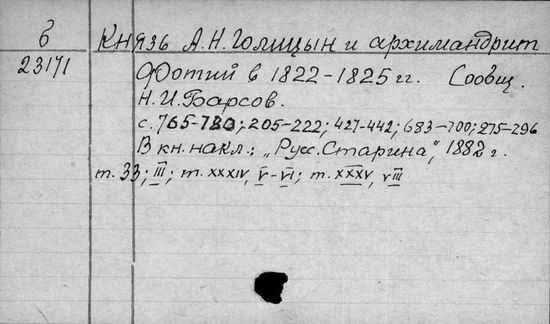 б Князь А.Н.Голицын и архимандрит
23171 Фотий в 1822-1825 гг. Сообщ.
Н.И.Барсов.
с.765-780; 205-222; 427-442; 683-700; 275-296
В кн. накл.: „Русс.Старина", 1882 г.
т. 33; III; т. XXXIV, V-VI; т. XXXV, VIII